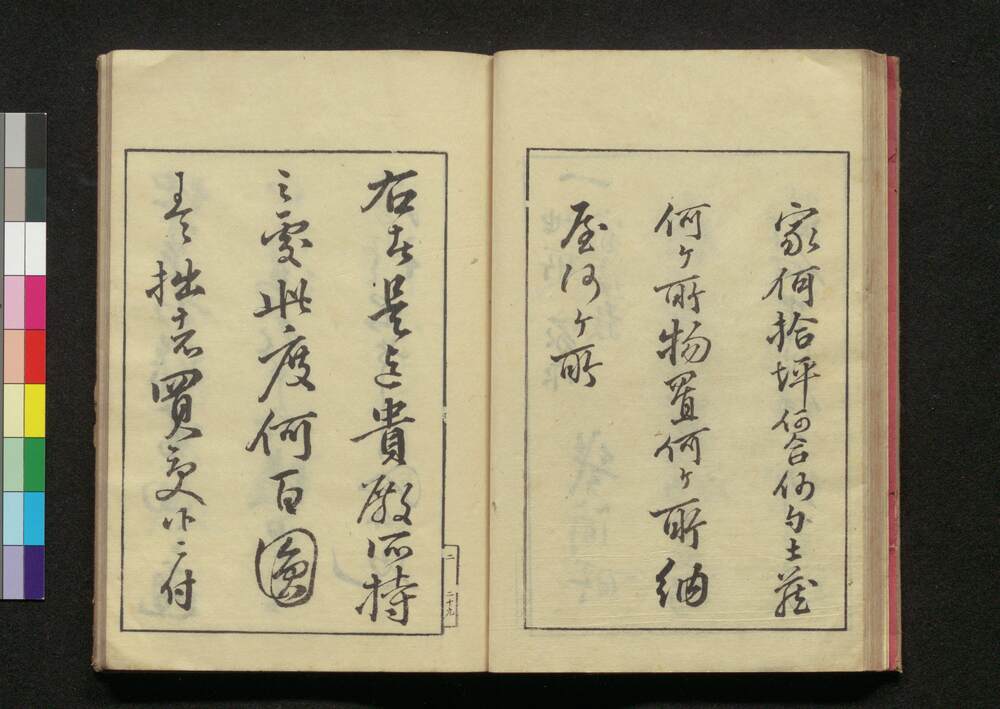 家何拾坪何合何勺土蔵
何ヶ所物置何ヶ所納
屋何ヶ所
右者是迄貴殿所持
之處此度何百圓
ニて拙者買受候ニ付
二 二十九